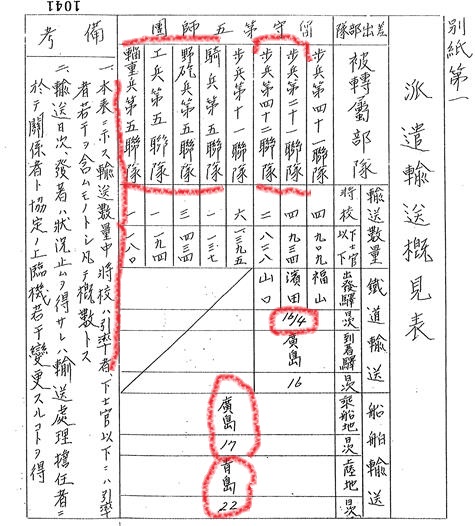 1041
別紙第一
派遣輸送概見表
差出部隊
留守第五師團
被轉屬部隊
歩兵第四十一聯隊
歩兵第二十一聯隊
歩兵第四十二聯隊
歩兵第十一聯隊
騎兵第五聯隊
野砲兵第五聯隊
工兵第五聯隊
輜重兵第五聯隊
輸送數量
將校
下士官以下
四 九〇九
四 九三四
二 八三八
六 一三九五
一 一三七
三 四三四
一 一九四
一 一八〇
鐵道輸送
出發驛
日次
到着驛
日次
福山
濱田
山口
16/4
廣島
16
船舶輸送
乘船地
日次
上陸地
日次
廣島
17
青島
22
備考
一、本表ニ示ス輸送數量中將校ハ引率者、下士官以下ニハ引率
者若干ヲ含ムモノトシ凡テ概數トス
二、輸送日次、發着ハ狀況止ムヲ得サレハ輸送處理擔任者ニ
於テ關係者ト協定ノ上臨機若干變更スルコトヲ得